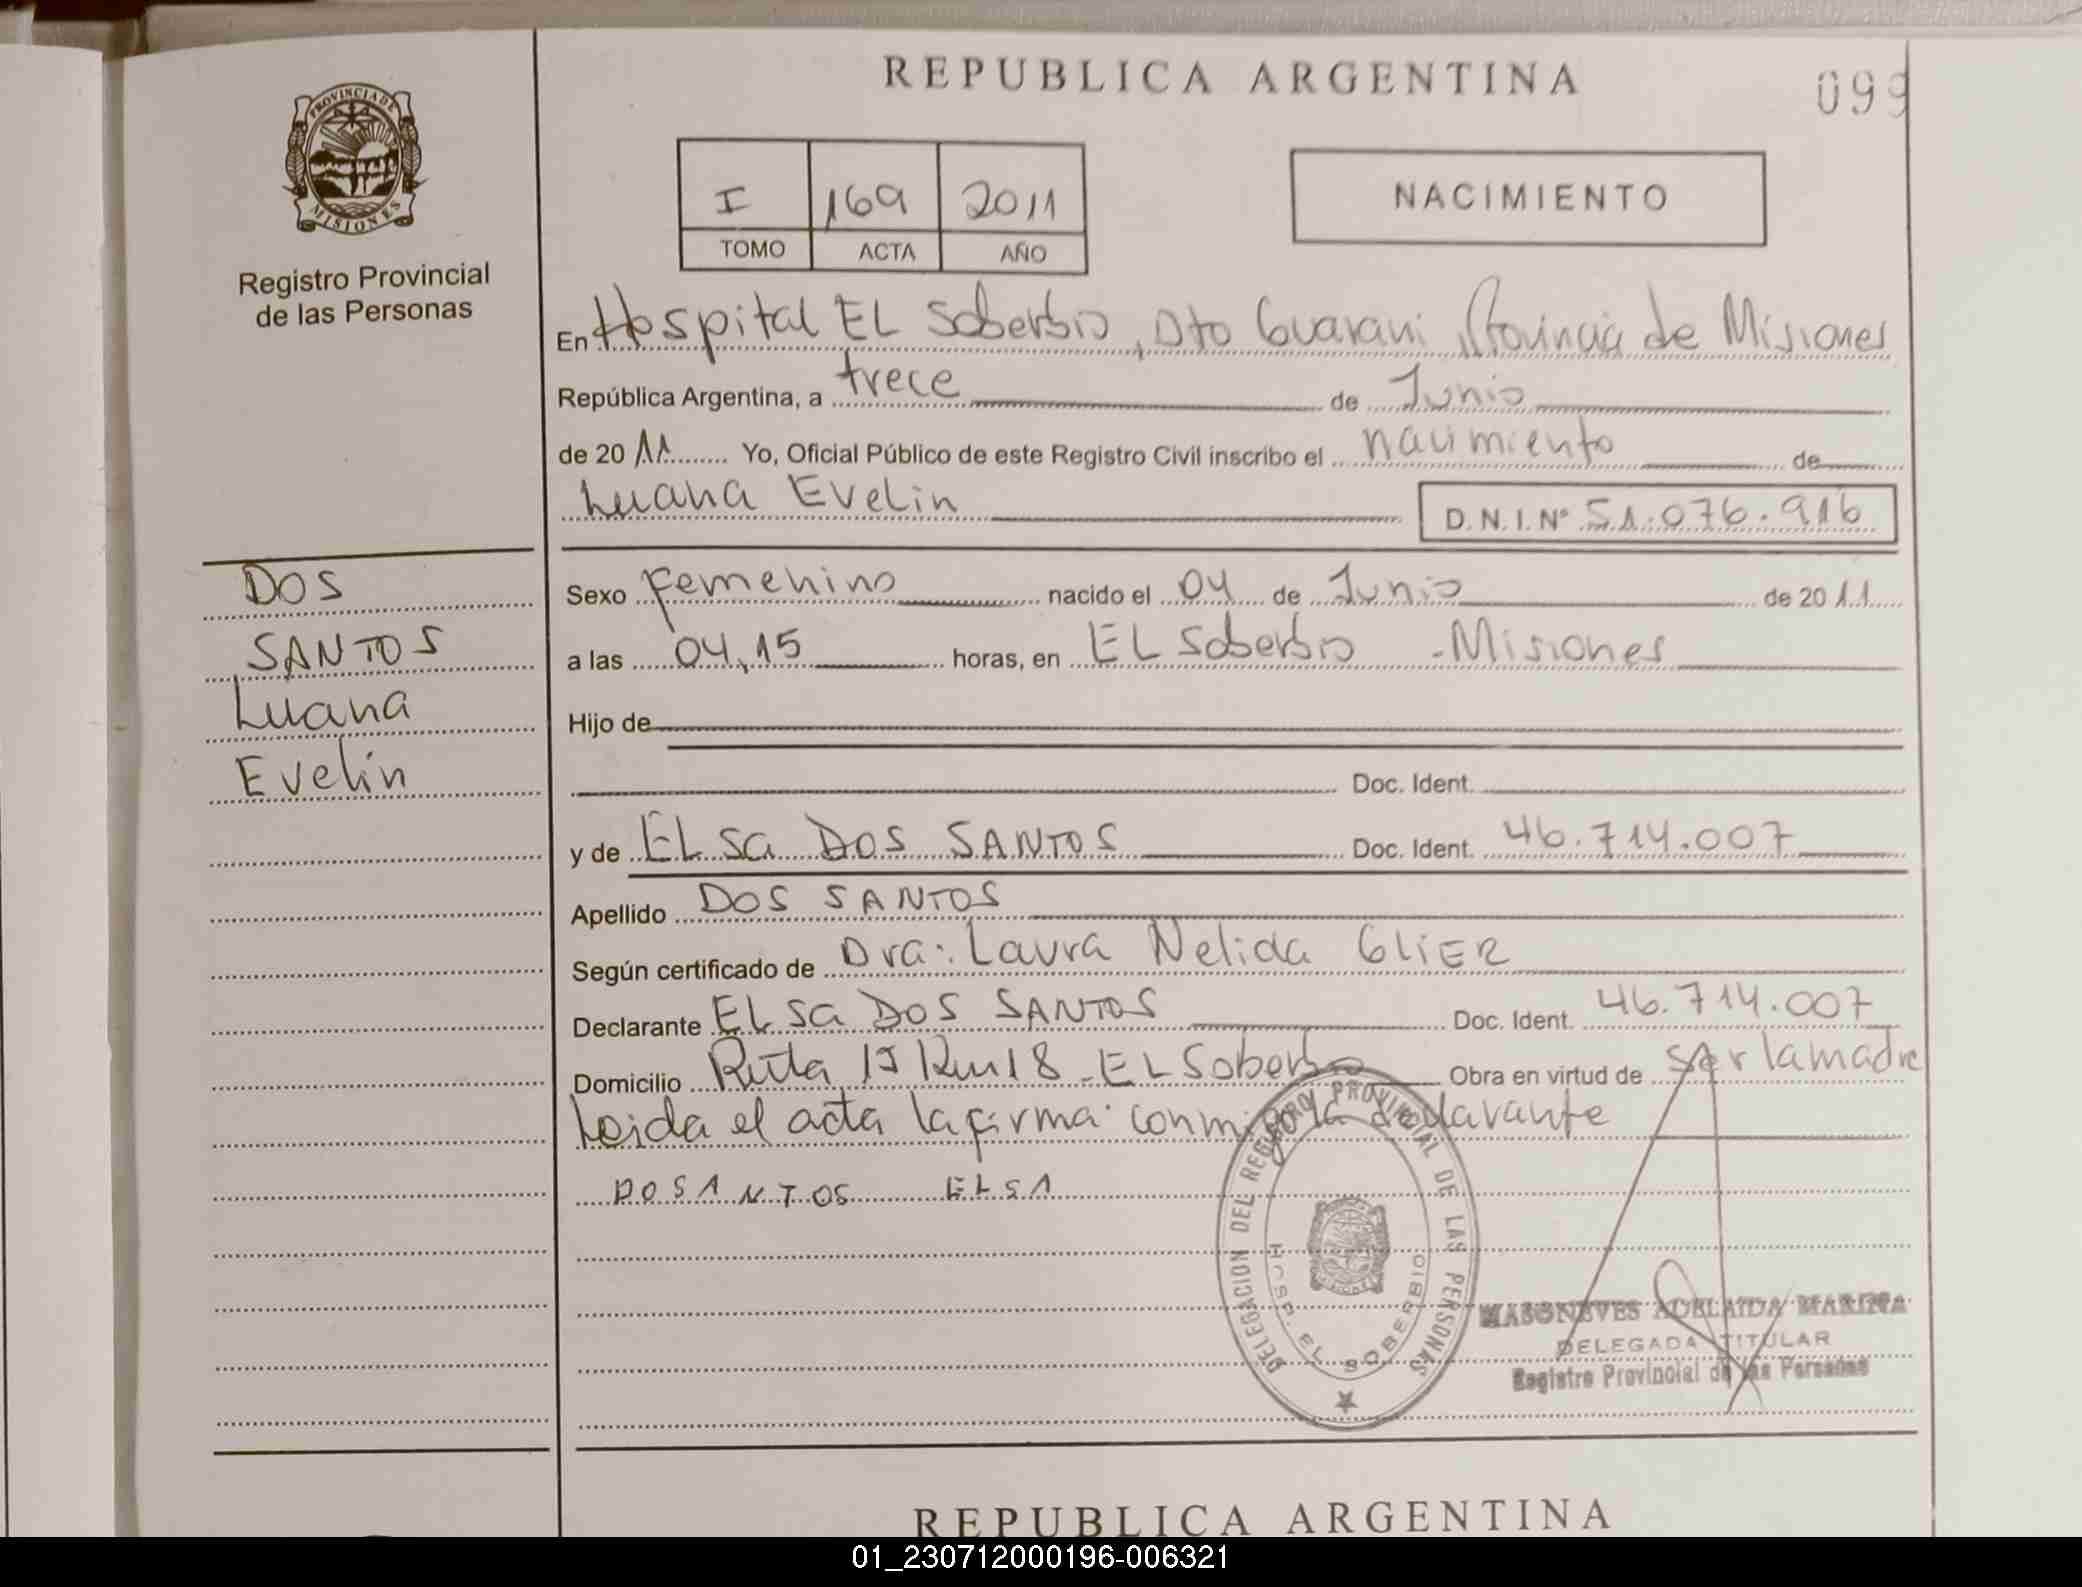 REPUBLICA ARGENTINA
099
PROVINCIA DE
MISIONES
Registro Provincial
de las Personas
I 169 2011
TOMO ACTA AÑO
NACIMIENTO
En Hospital EL Soberbio, Dto Guarani Provincia de Misiones
República Argentina, a trece de Junio
de 20 11 Yo, Oficial Público de este Registro Civil inscribo el nacimiento de
Luana Evelin D.N.I. Nº 51.076.916
DOS
SANTOS
Luana
Evelin
Sexo Femenino nacido el 04 de Junio de 20 11
a las 04,15 horas, en EL Soberbio - Misiones
Hijo de
Doc. Ident.
y de ELsa DOS SANTOS Doc. Ident. 46.714.007
Apellido DOS SANTOS
Según certificado de Dra: Laura Nelida GLIER
Declarante ELsa DOS SANTOS Doc. Ident. 46.714.007
Domicilio Ruta 13 Km 18 - EL Soberbio Obra en virtud de ser la madre
Leida el acta la firma conmigo la declarante
DOSANTOS ELSA
DELEGACION DEL REGISTRO PROVINCIAL DE LAS PERSONAS
HOSP. EL SOBERBIO
ADELAIDA MARINA
DELEGADA TITULAR
Registro Provincial de las Personas
REPUBLICA ARGENTINA
01_230712000196-006321